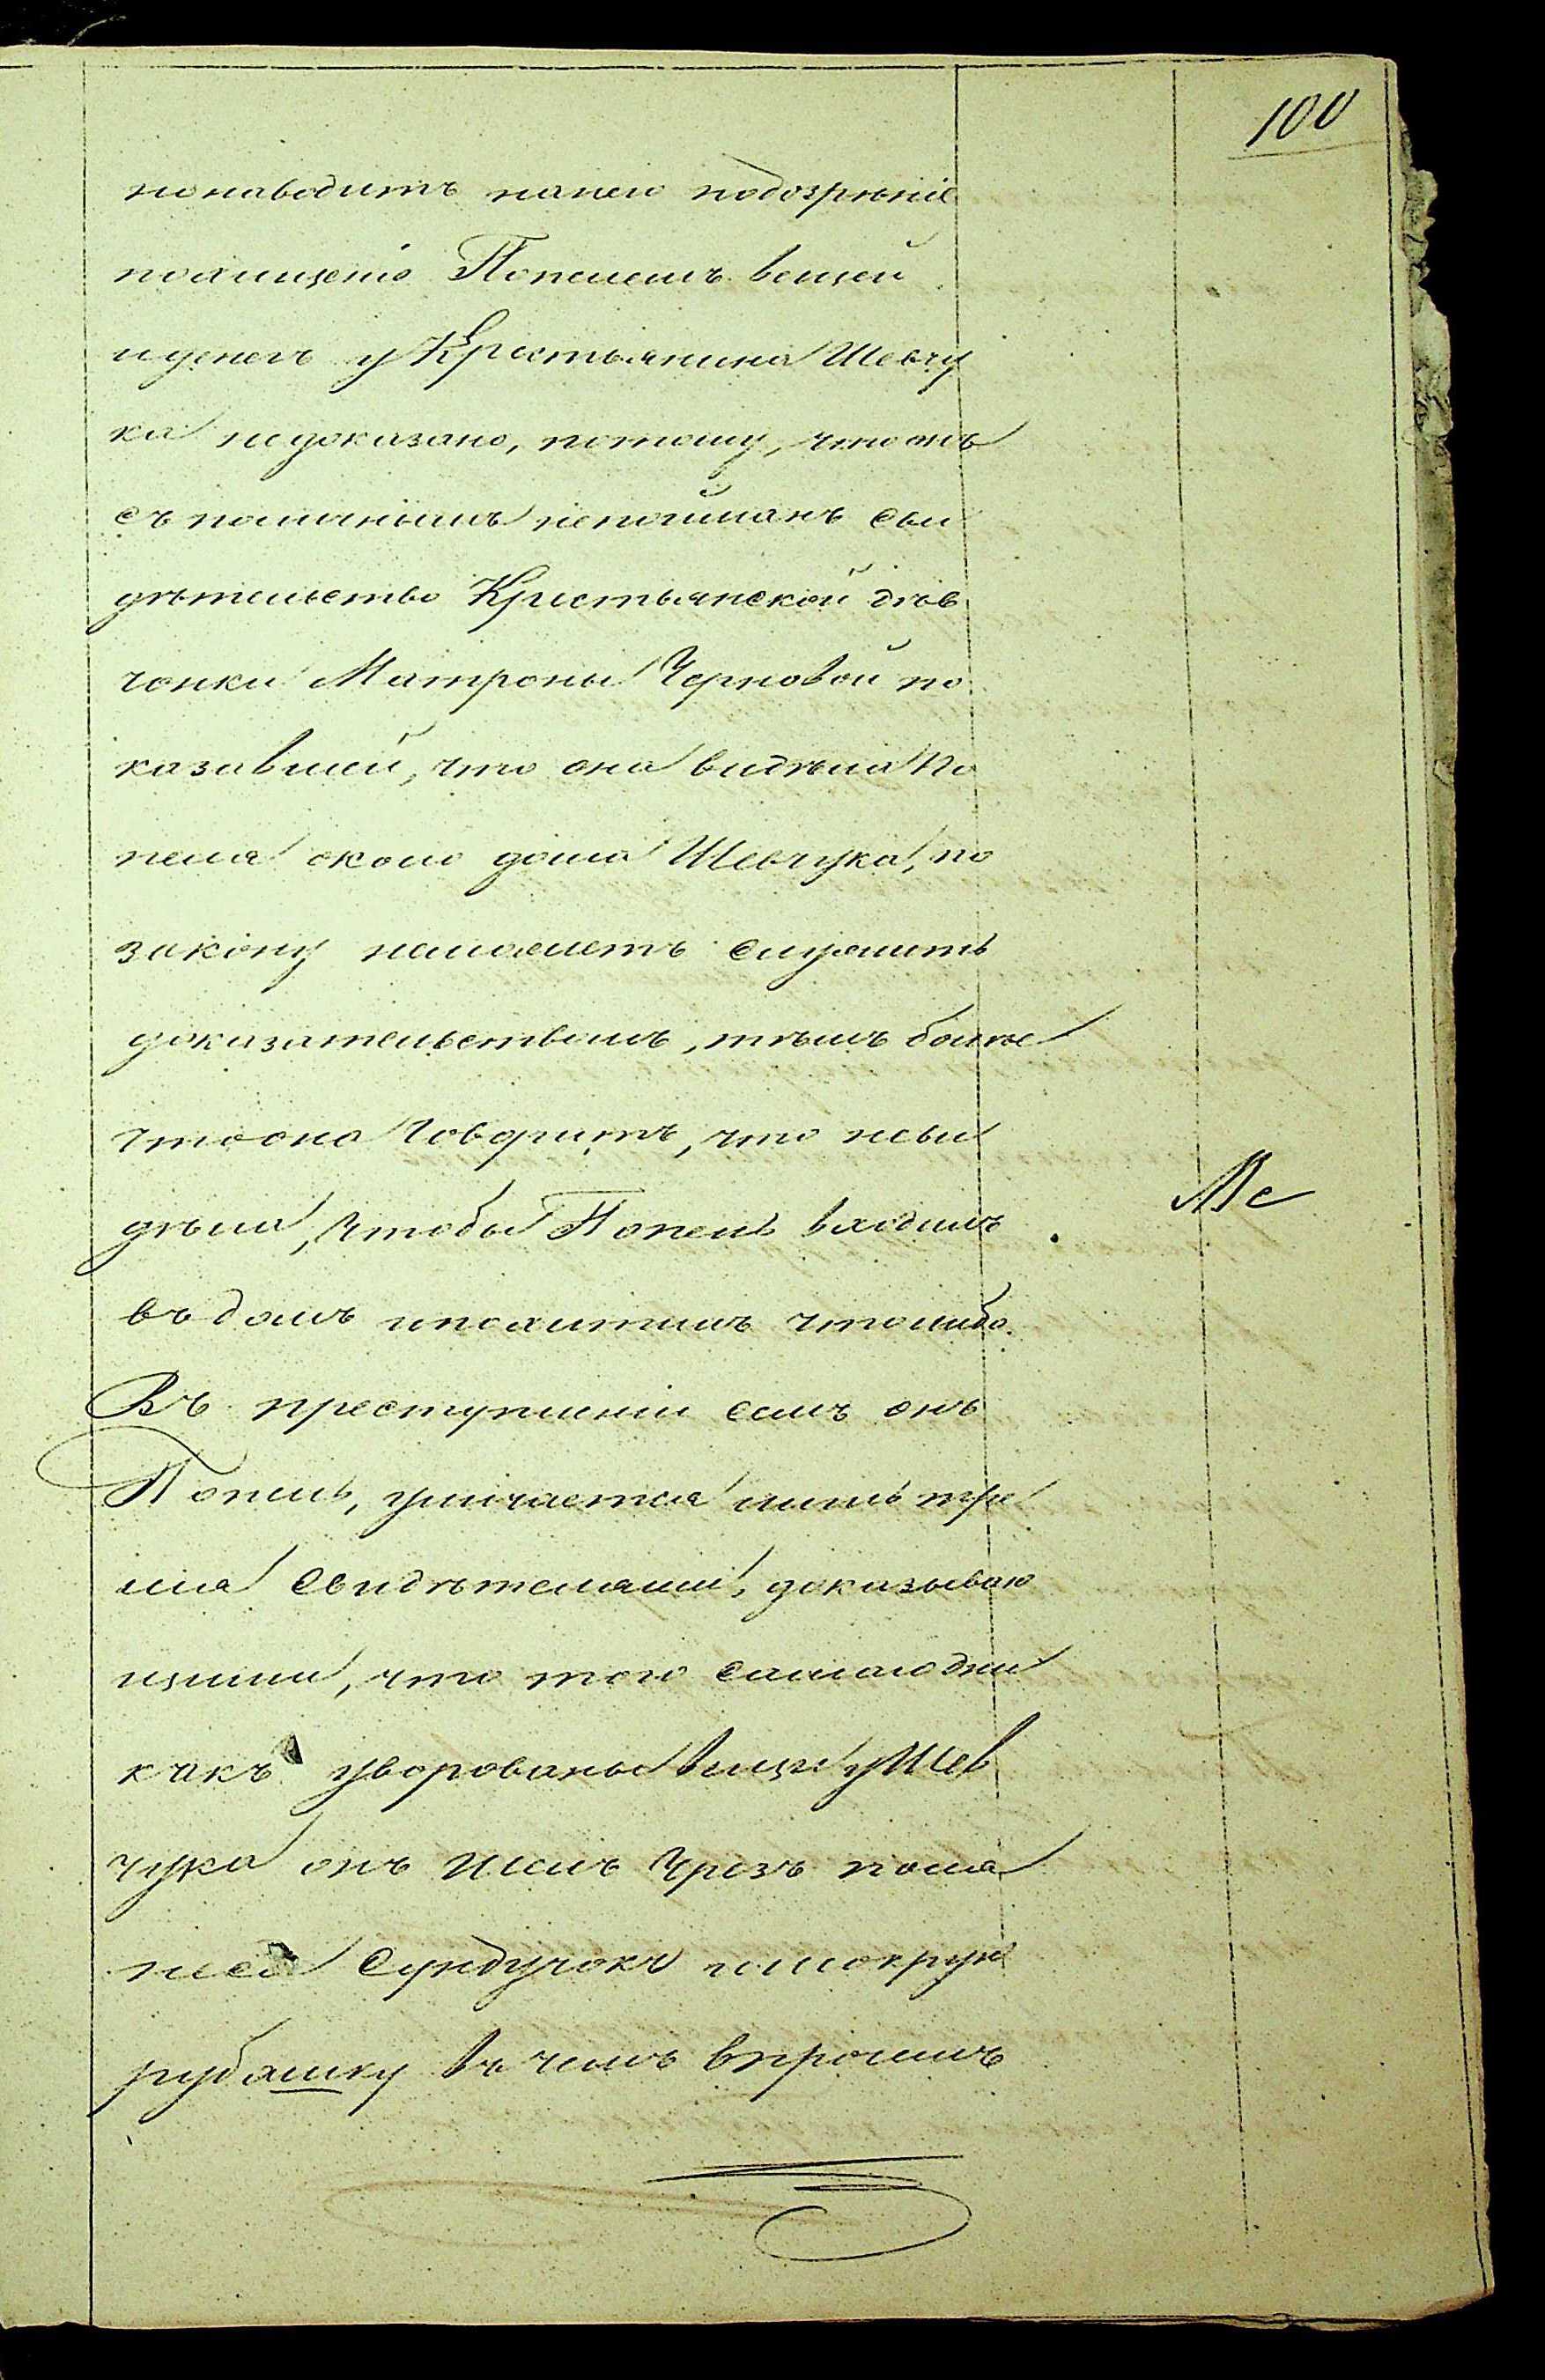 100
но наводитъ нанего подозрѣніе
похищеніе Попелемъ вещей
иденегъ у Крестьянина Шевчу
ка недоказано, потому, что онъ
съ поличнымъ непойманъ сви
дѣтельство Крестьянской дѣв
чонки Матроны Черновой по
казавшей, что она видѣла По
пеля около дома Шевчука, по
закону неможетъ служить
доказательствомъ, тѣмъ болѣе
что она говоритъ, что неви
дѣла, чтобы Попель входилъ
въ домъ ипохитилъ чтолибо.
Въ преступленіи семъ онъ
Попель, уличается лишь тре
мя свидѣтелями, доказываю
щими, что того самаго дня
какъ уворованы вещи уШев
чука онъ шелъ чрезъ поля
несъ сундучокъ имокрую
рубашку въ чемъ впрочемъ